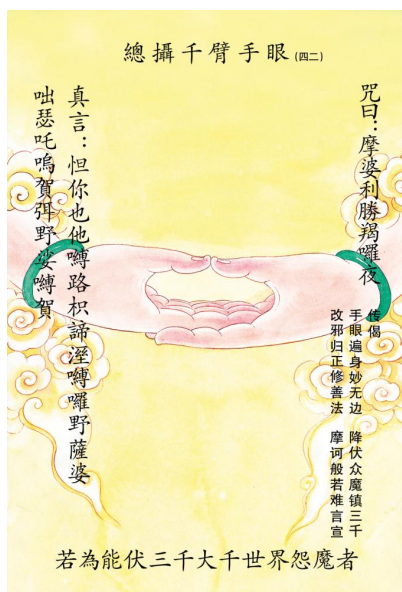 總攝千臂手眼(四二)
咒曰：摩婆利勝羯囉夜
传偈
手眼遍身妙无边 降伏众魔镇三千
改邪归正修善法 摩诃般若难言宣
真言：怛你也他嚩路枳諦溼嚩囉野薩婆
咄瑟吒嗚賀弭野娑嚩賀
若為能伏三千大千世界怨魔者